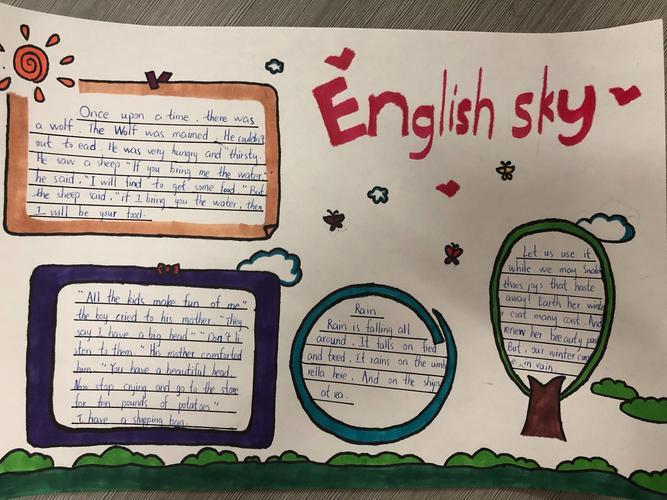 English sky
Once upon a time, there was
a wolf. The Wolf was maimed, He couldn't
out to ead. He was very hungry and thirsty.
He saw a sheep "If you bring me the water,"
he said, "I will find to get some food." But
the sheep said, "if I bring you the water, then
I will be your food.
"All the kids make fun of me"
the boy cried to his mother "They
say I have a big head" "Don't li
sten to them." His mother comforted
him. "You have a beautiful head.
Now stop crying and go to the store
for ten pounds of potatoes"
I have a shopping bag.
Rain
Rain is falling all
around, It falls on fied
and treed, It rains on the umb
rella here, And on the ships
at sea.
Let us use it
while we may Snatch
thoes joys that haste
away! Earth her winter
coat many cast, And
renew her beeauty past
But, our winter com
in rain.